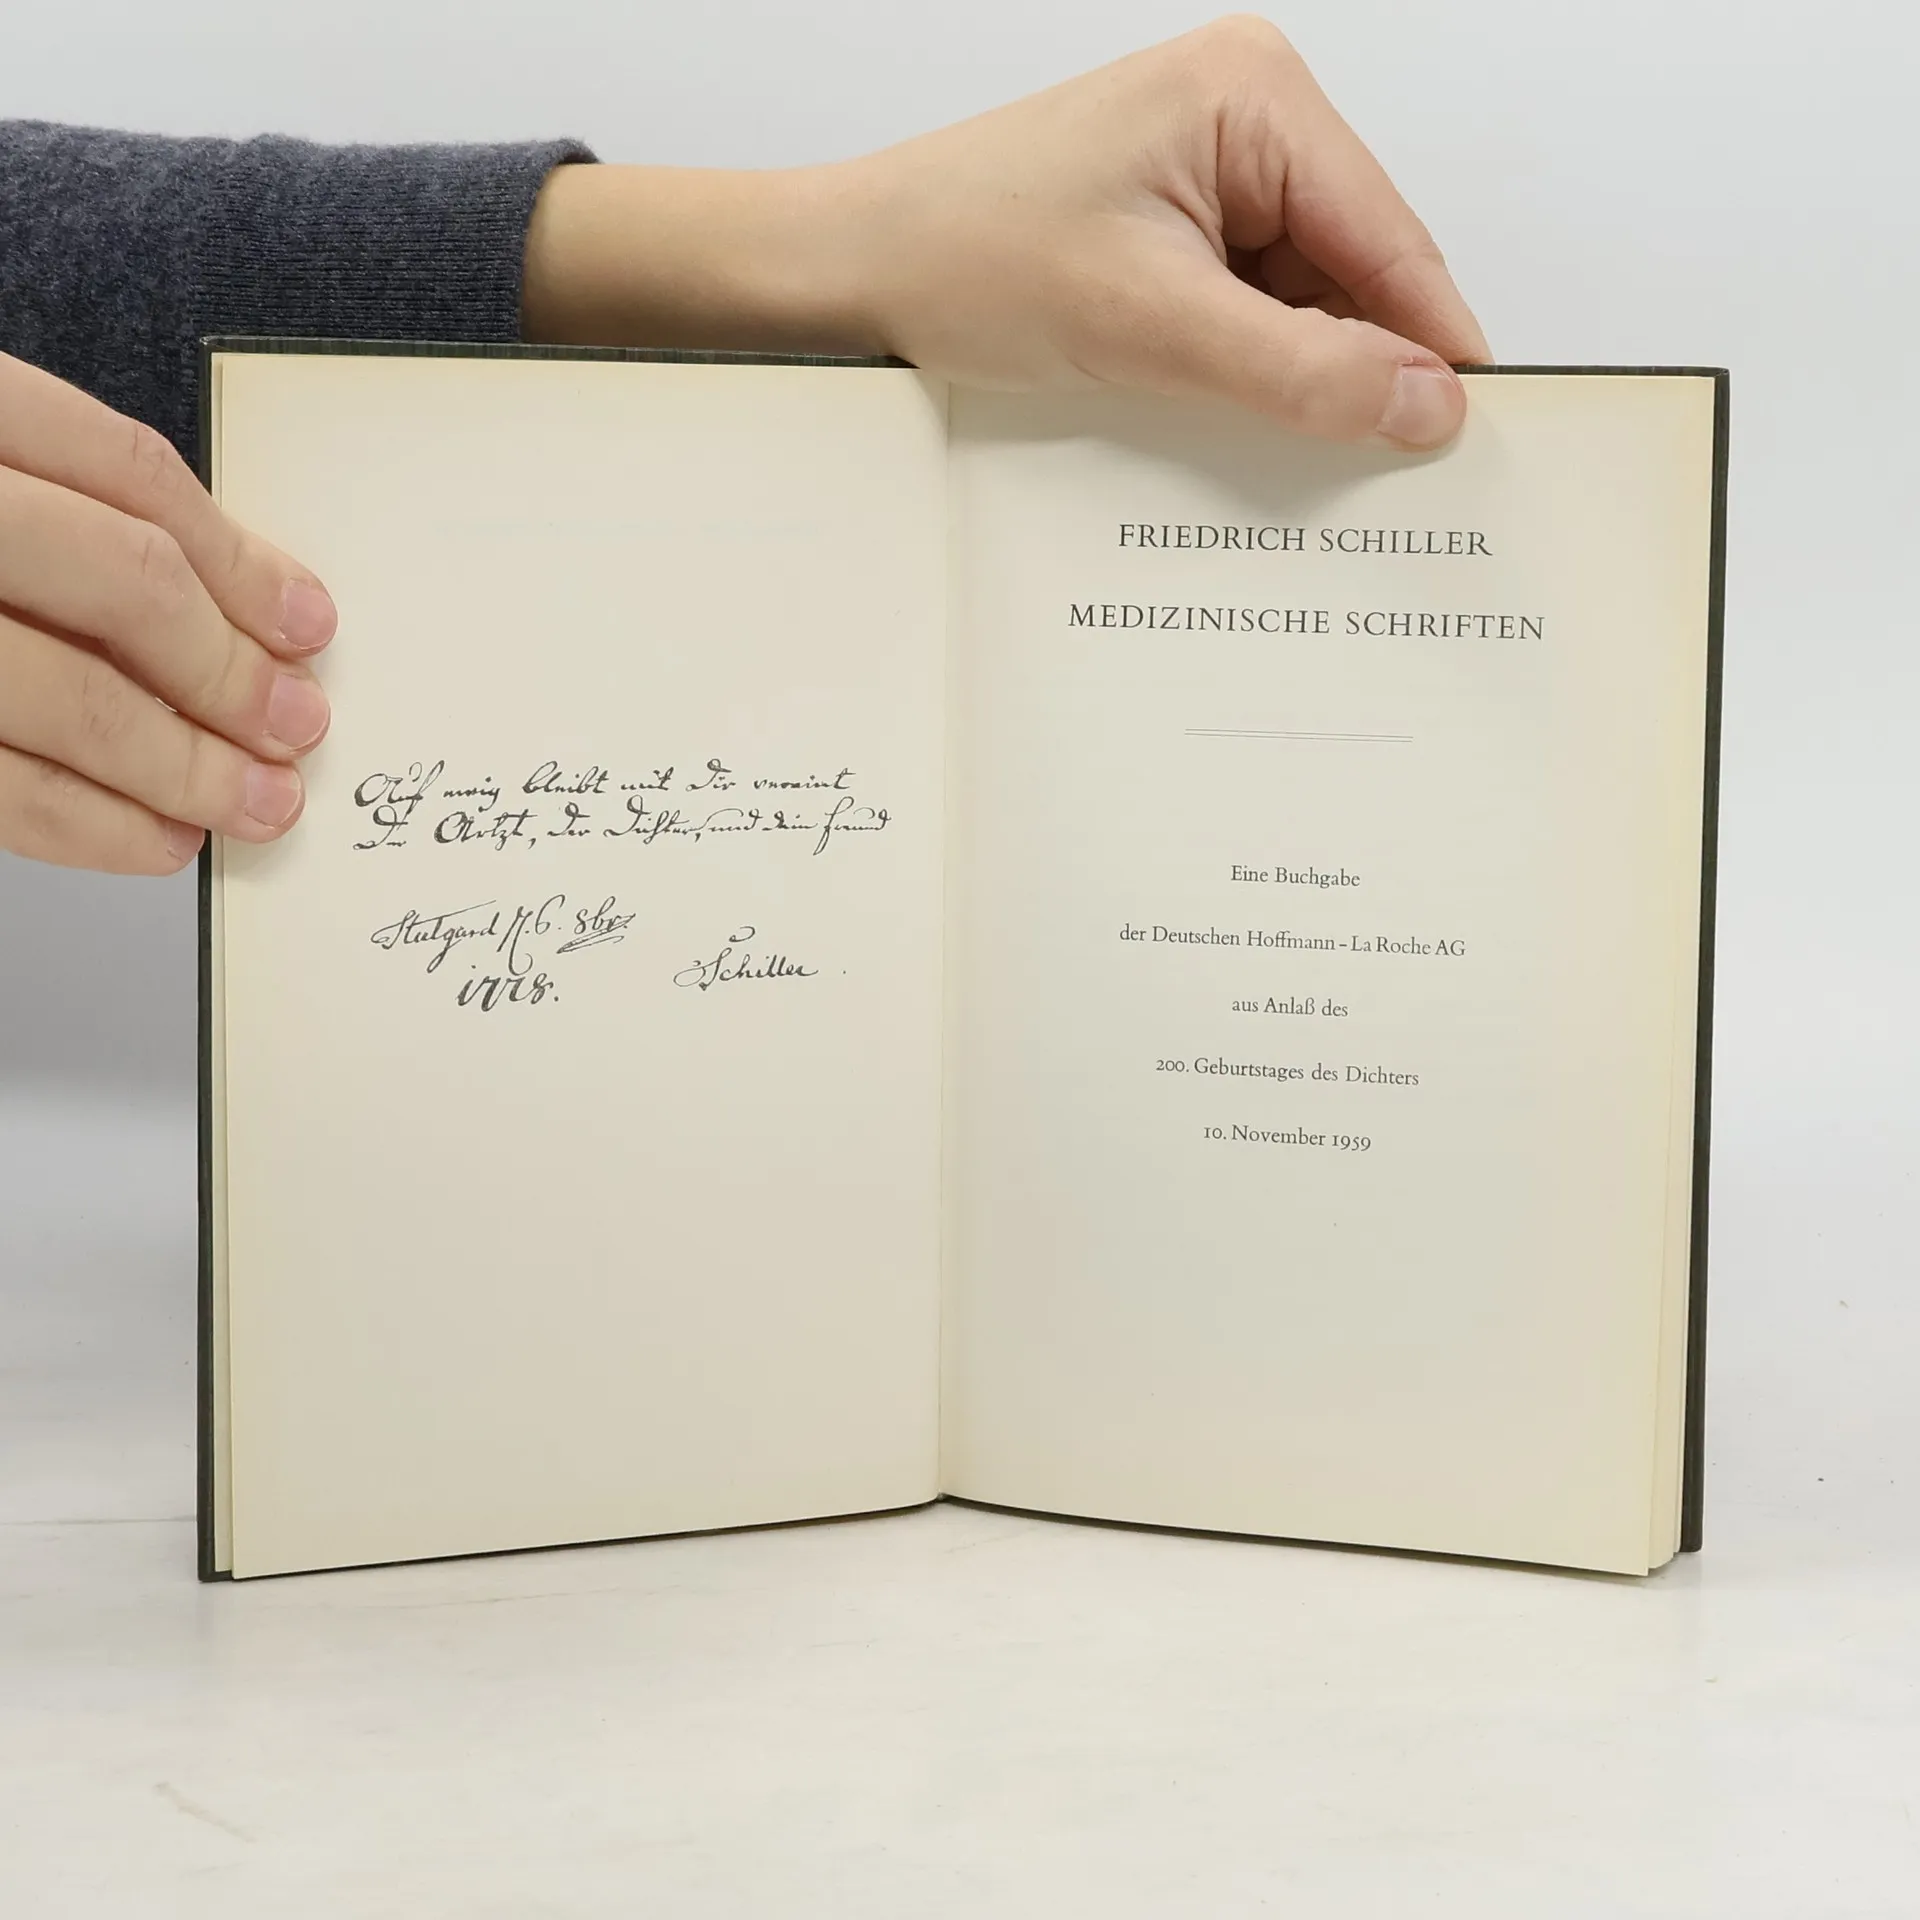 Auf ewig bleibt mit Dir vereint
Der Artzt, der Dichter, und dein Freund
Stutgard 8br.
1778.
Schiller
FRIEDRICH SCHILLER
MEDIZINISCHE SCHRIFTEN
Eine Buchgabe
der Deutschen Hoffmann-La Roche AG
aus Anlaß des
200. Geburtstages des Dichters
10. November 1959